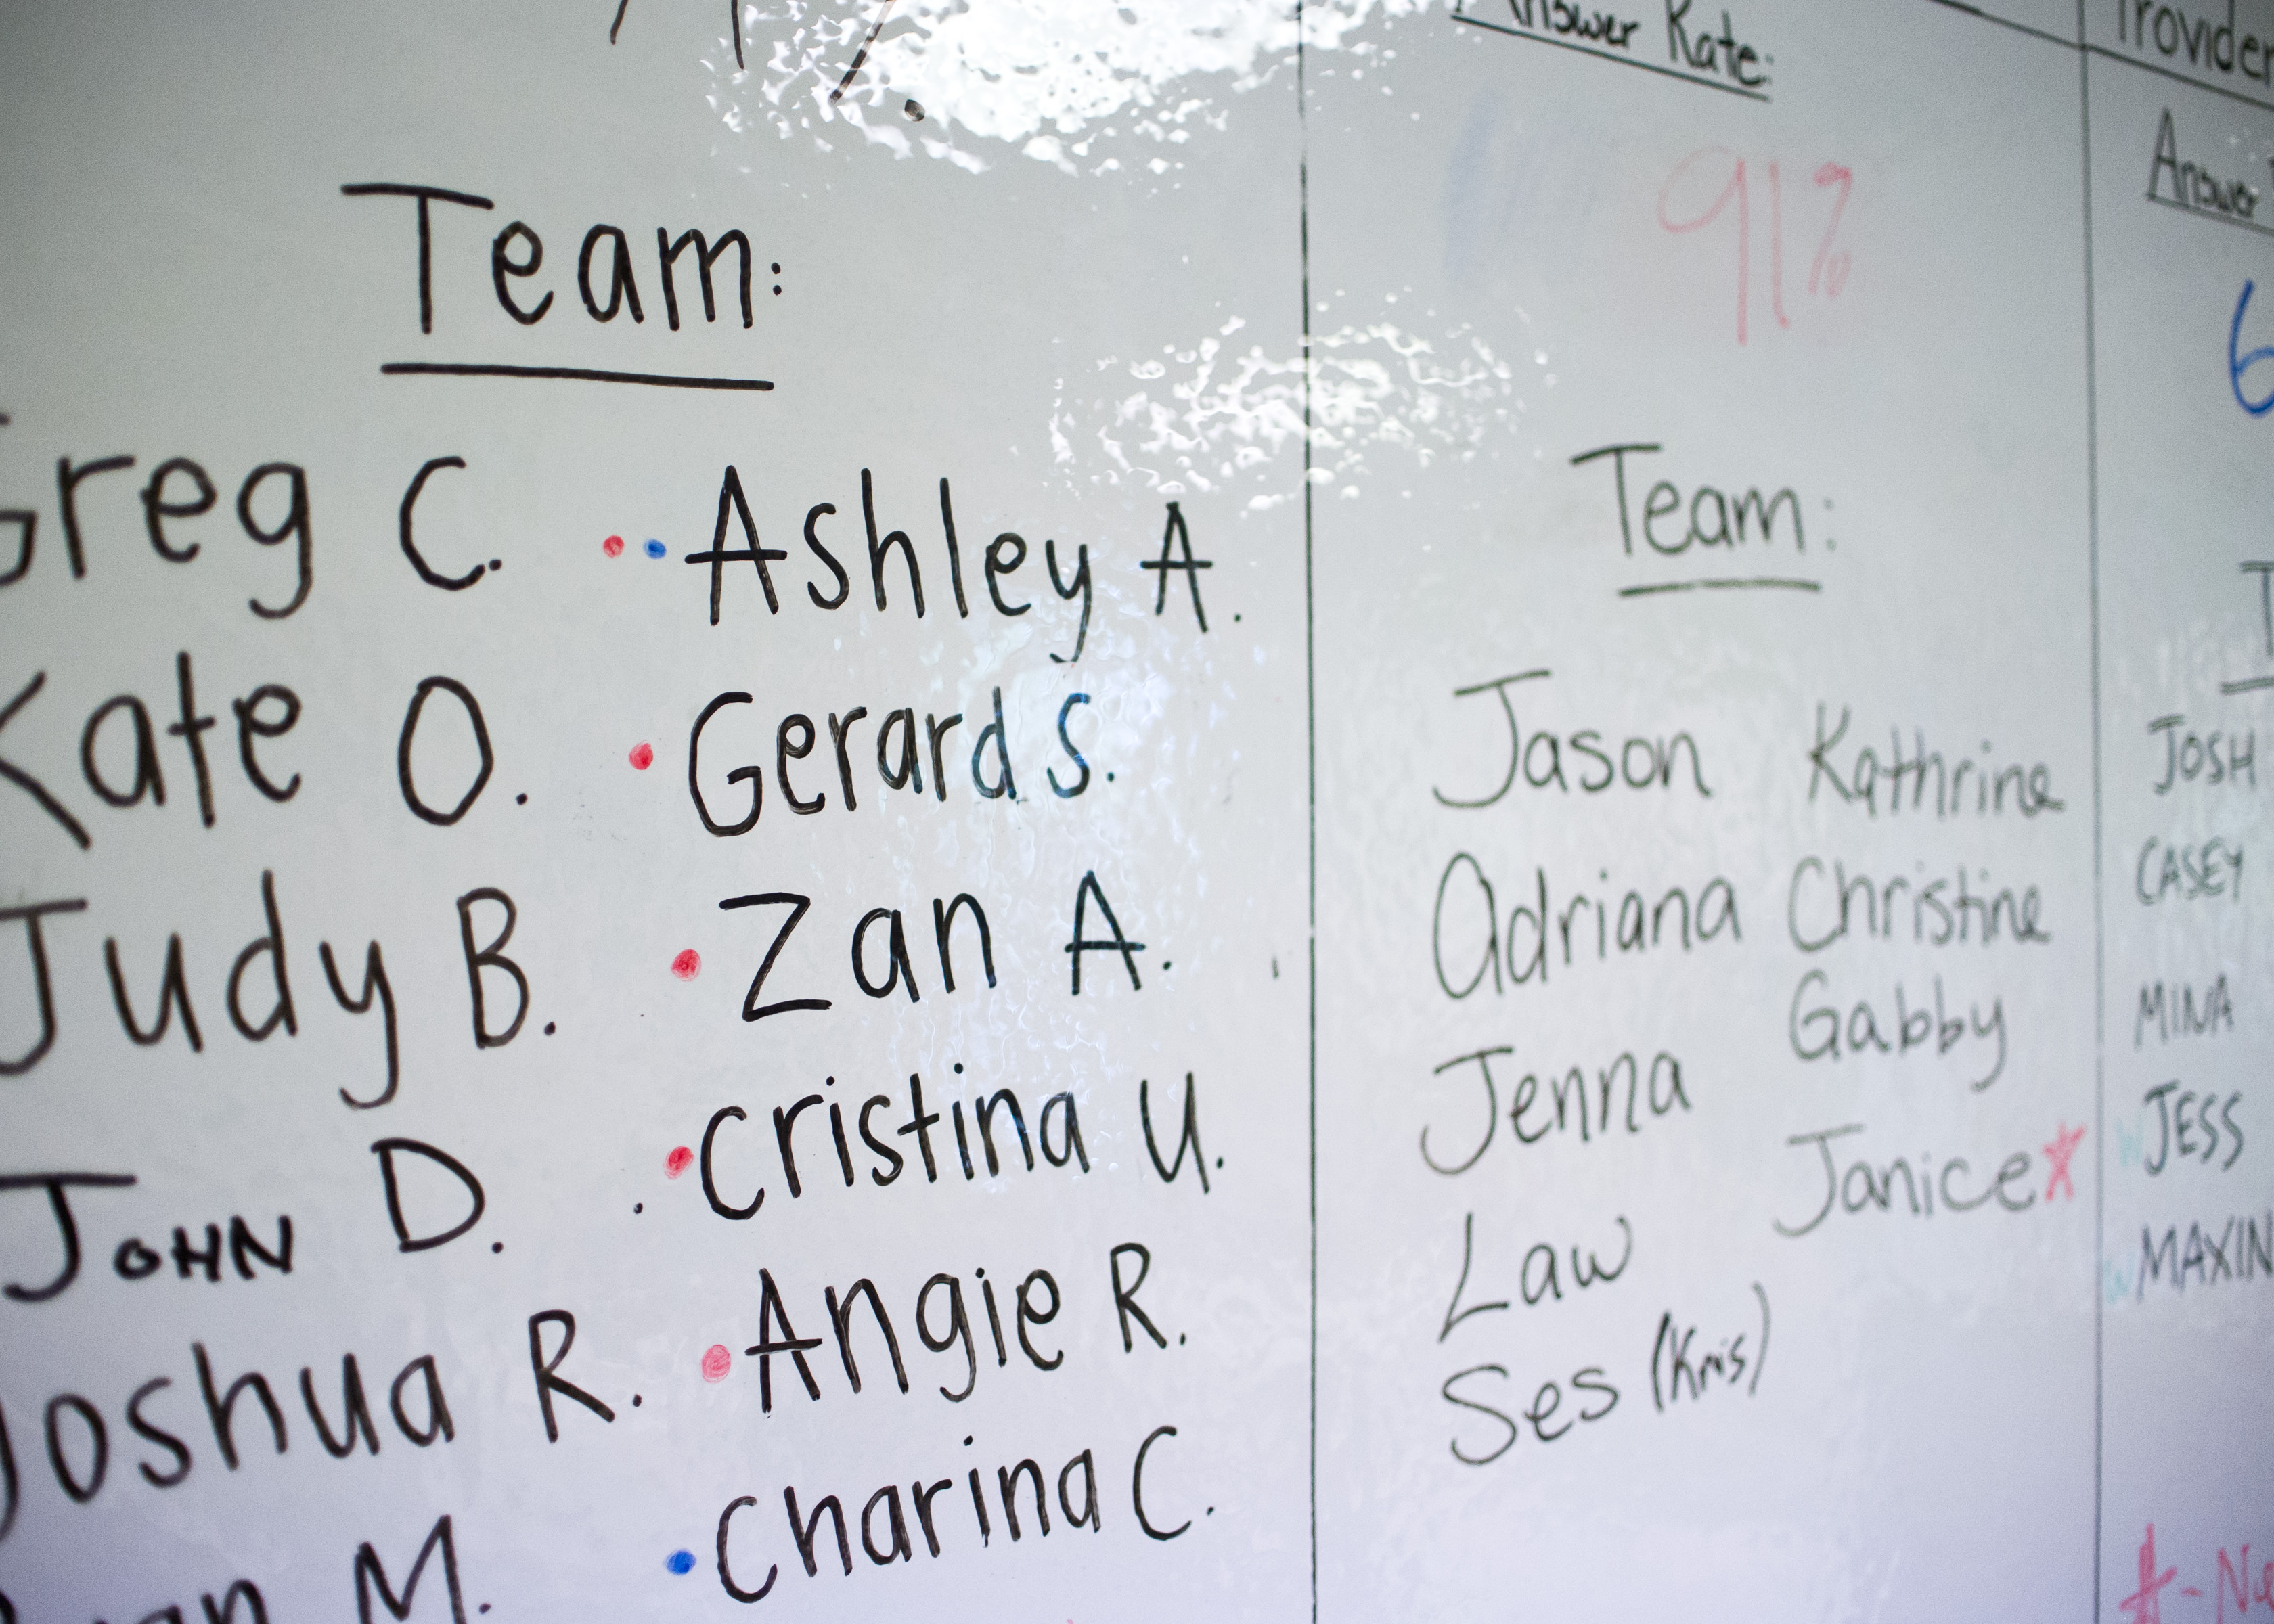 Team:
Greg C. Ashley A.
Kate O. Gerard S.
Judy B. Zan A.
JOHN D. Cristina U.
Joshua R. Angie R.
M. Charina C.
Answer Rate:
91%
Team:
Jason Kathrine
Adriana Christine
Jenna Gabby
Law Janice
Ses (Kris)
Provider
Answer
6
JOSH
CASEY
MINA
JESS